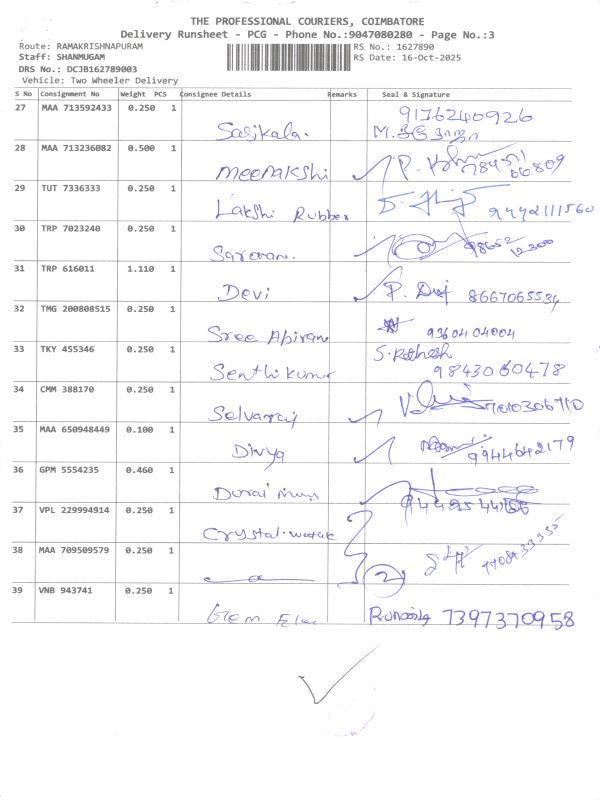 THE PROFESSIONAL COURIERS, COIMBATORE
Delivery Runsheet - PCG - Phone No.:9047080280 - Page No.:3
Route: RAMAKRISHNAPURAM RS No.: 1627890
Staff: SHANMUGAM RS Date: 16-Oct-2025
DRS No.: DCJB162789003
Vehicle: Two Wheeler Delivery
S No Consignment No Weight PCS Consignee Details Remarks Seal & Signature
27 MAA 713592433 0.250 1 9176240926
Sasikala.
28 MAA 713236082 0.500 1
Meenakshi
29 TUT 7336333 0.250 1
Lakshi Rubber 9442111560
30 TRP 7023240 0.250 1 98652
Saravan. 12300
31 TRP 616011 1.110 1
Devi P. 8667065534
32 TMG 200808515 0.250 1
Sree Abirami 9360404004
33 TKY 455346 0.250 1
Senthikumar 9843060478
34 CMM 388170 0.250 1
Selvaraj
35 MAA 650948449 0.100 1
Divya 9944642179
36 GPM 5554235 0.460 1
Durai
37 VPL 229994914 0.250 1
Crystal
38 MAA 709509579 0.250 1
2
39 VNB 943741 0.250 1
Gem 7397370958